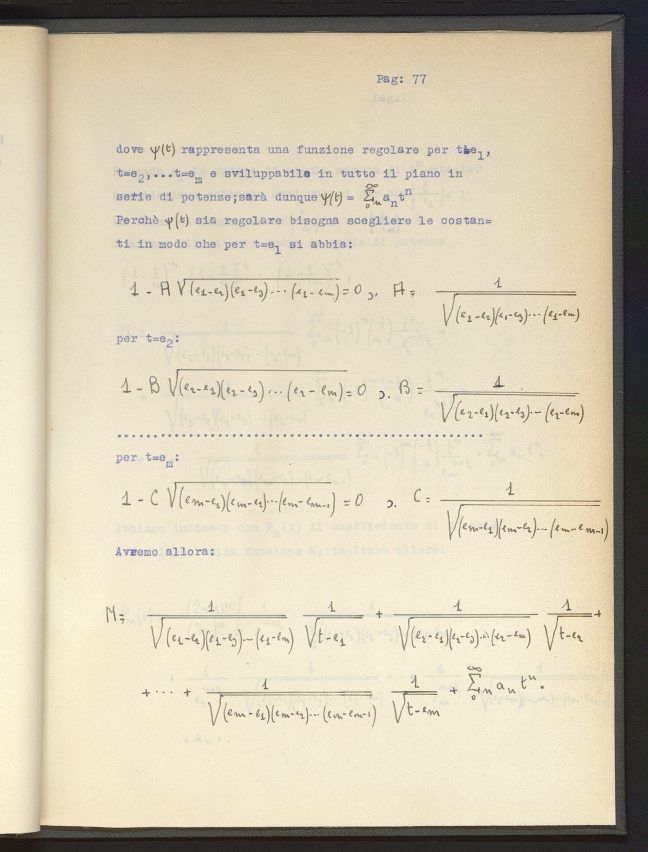 Pag: 77
dove ψ(t) rappresenta una funzione regolare per t=e₁,
t=e₂,...t=eₘ e sviluppabile in tutto il piano in
serie di potenze;sarà dunque ψ(t) = ∑₀^∞ₙ aₙtⁿ
Perchè ψ(t) sia regolare bisogna scegliere le costan=
ti in modo che per t=e₁ si abbia:
1 - A √(e₁-e₂)(e₁-e₃)...(e₁-eₘ) = 0 ɔ. A = 1/√(e₁-e₂)(e₁-e₃)...(e₁-eₘ)
per t=e₂:
1 - B √(e₂-e₁)(e₂-e₃)...(e₂-eₘ) = 0 ɔ. B = 1/√(e₂-e₁)(e₂-e₃)...(e₂-eₘ)
..................................................
per t=eₘ:
1 - C √(eₘ-e₁)(eₘ-e₂)...(eₘ-eₘ₋₁) = 0 ɔ. C = 1/√(eₘ-e₁)(eₘ-e₂)...(eₘ-eₘ₋₁)
Avremo allora:
M = 1/√(e₁-e₂)(e₁-e₃)...(e₁-eₘ) 1/√t-e₁ + 1/√(e₂-e₁)(e₂-e₃)...(e₂-eₘ) 1/√t-e₂ +
+ ... + 1/√(eₘ-e₁)(eₘ-e₂)...(eₘ-eₘ₋₁) 1/√t-eₘ + ∑₀^∞ₙ aₙ tⁿ.